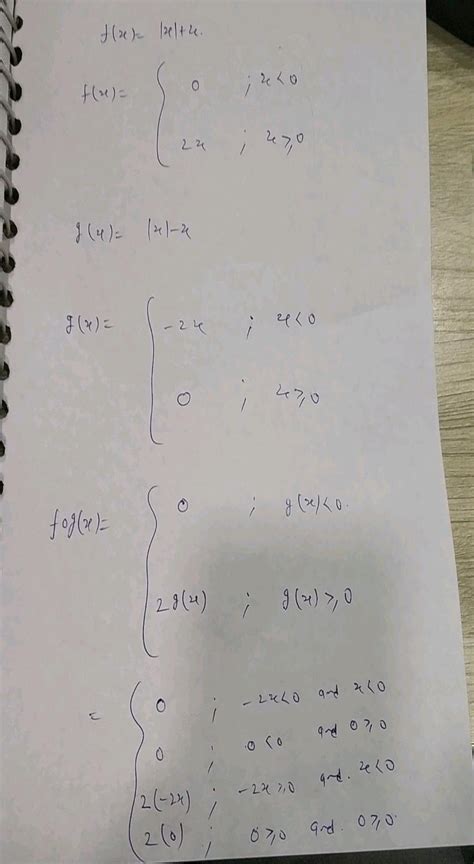 f(x) = |x|+x.
f(x) = { 0 ; x<0
2x ; x≥0
g(x) = |x|-x
g(x) = { -2x ; x<0
0 ; x≥0
fog(x) = { 0 ; g(x)<0.
2g(x) ; g(x)≥0
= { 0 ; -2x<0 and x<0
0 ; 0<0 and 0≥0
2(-2x) ; -2x≥0 and. x<0
2(0) ; 0≥0 and. 0≥0.